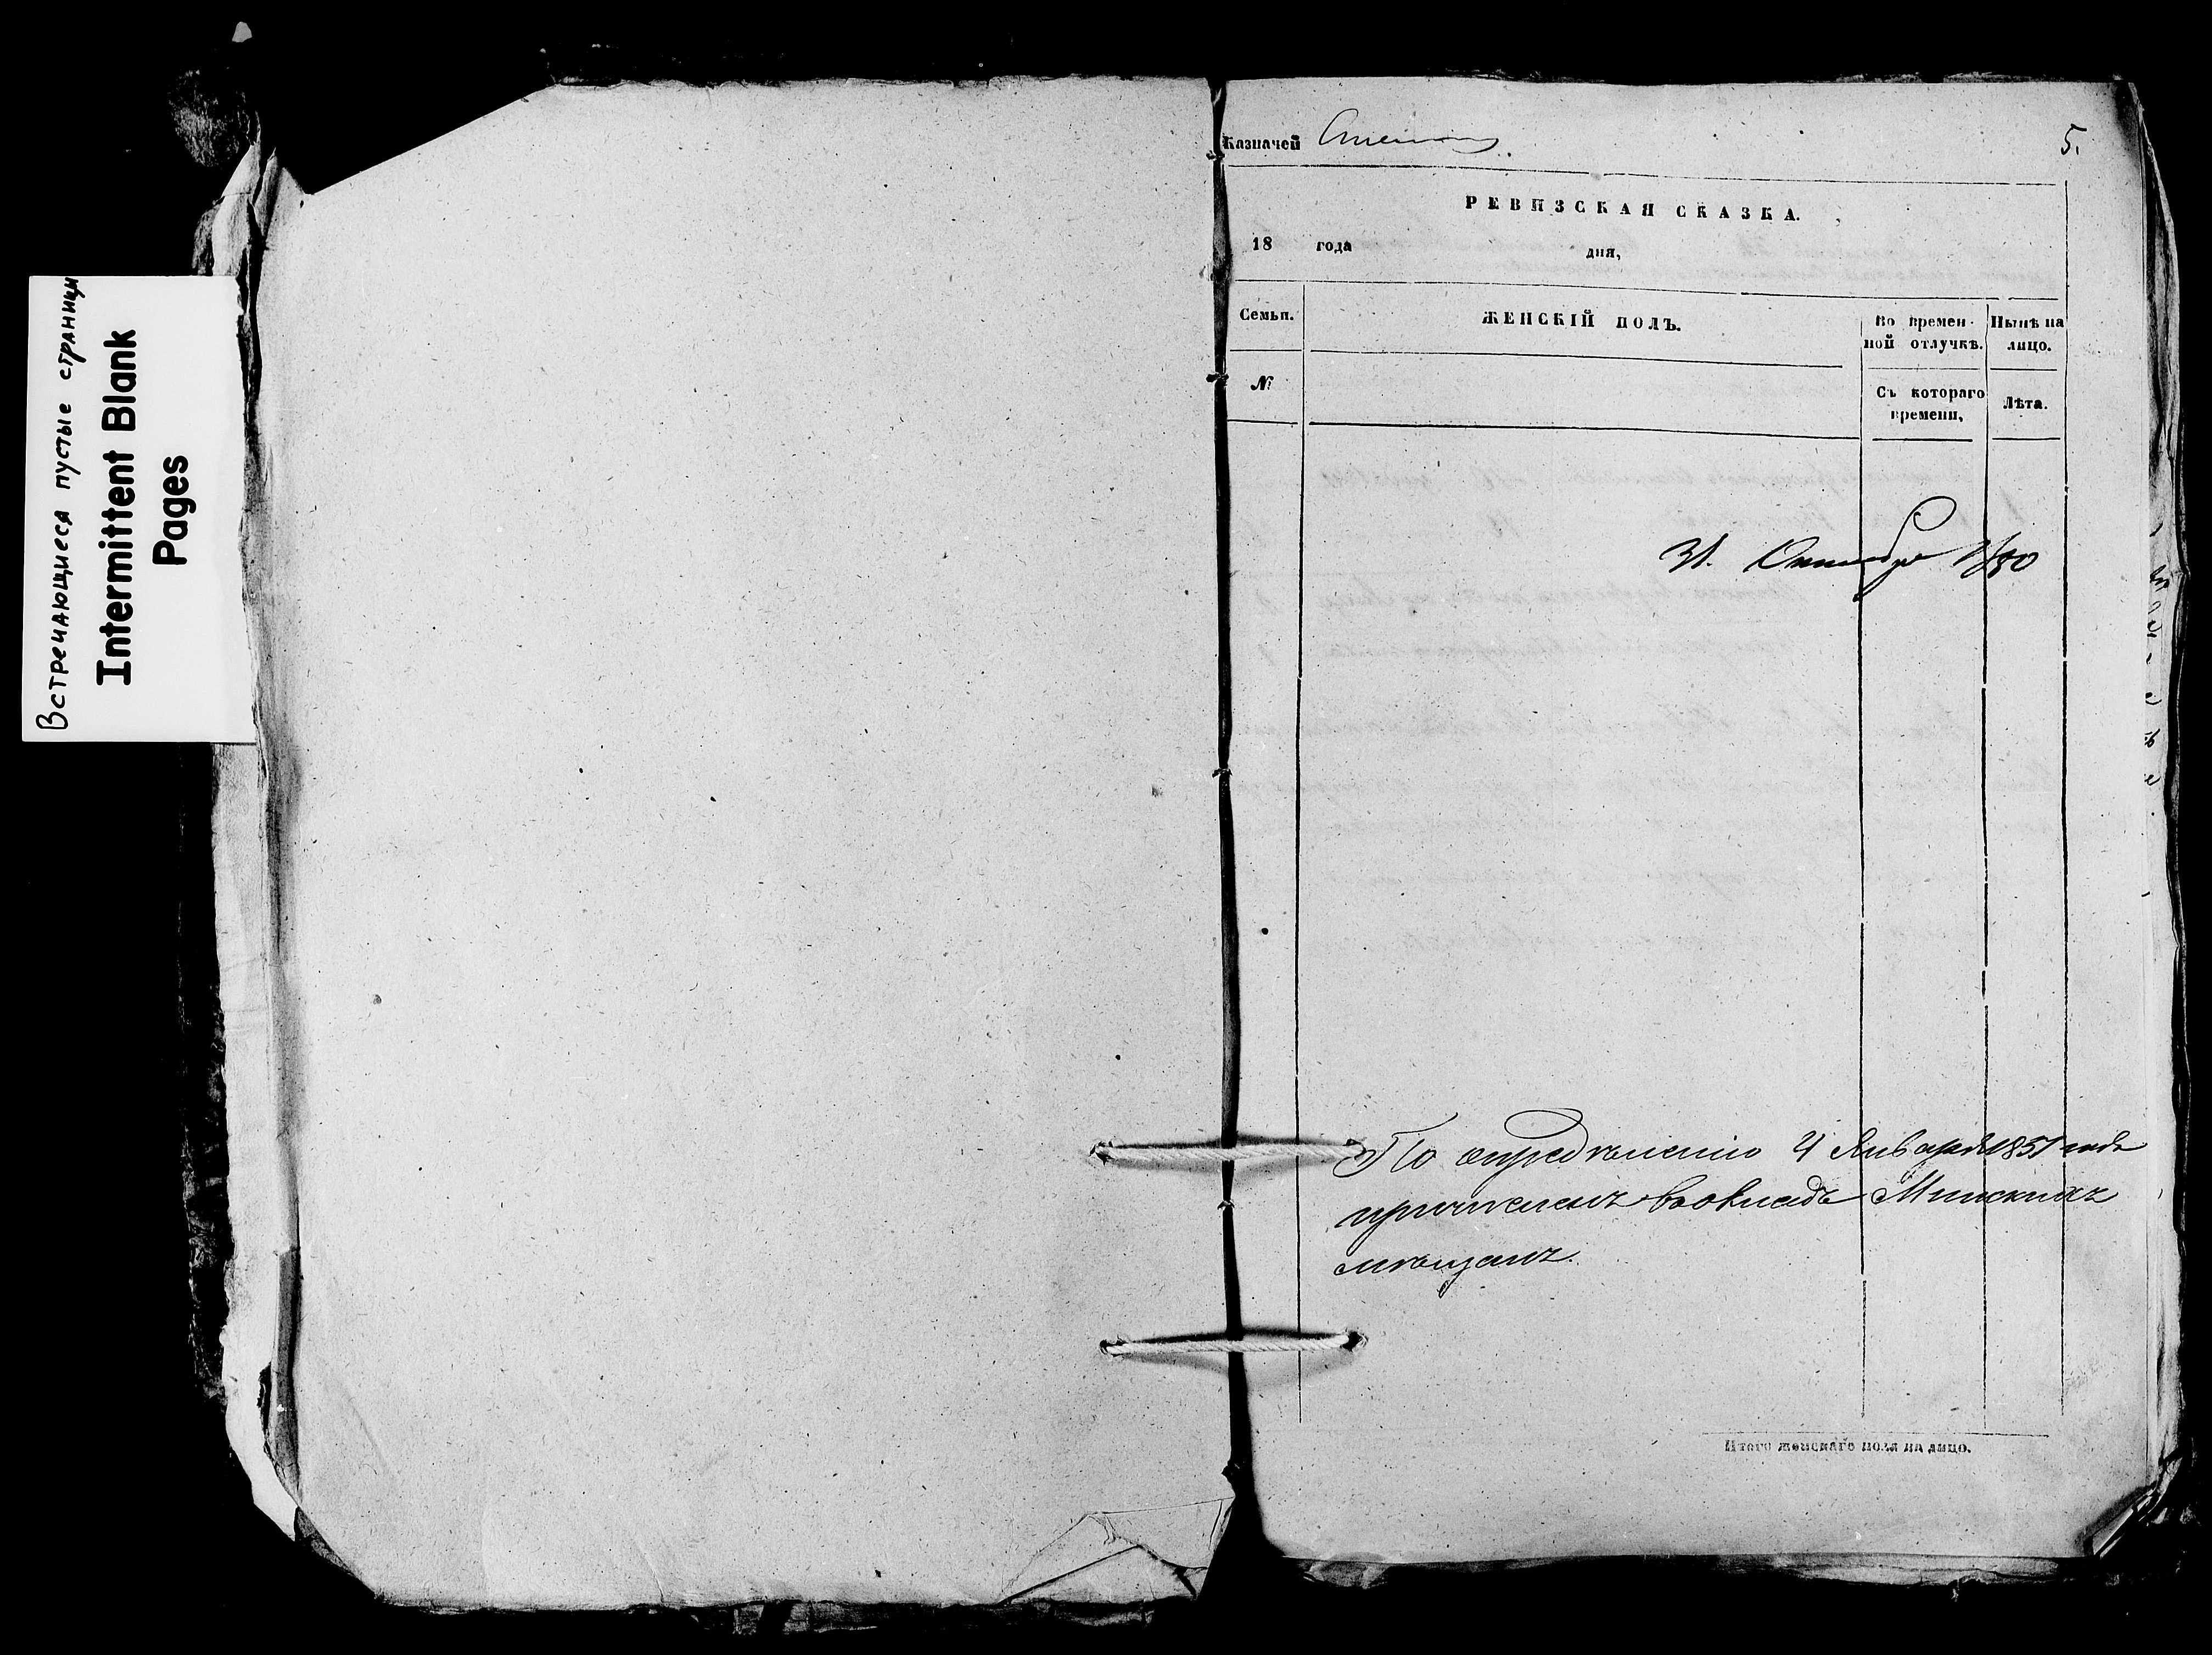 Встречающиеся пустые страницы
Intermittent Blank
Pages
Казначей
5.
РЕВИЗСКАЯ СКАЗКА.
18 года дня,
Семьи. ЖЕНСКІЙ ПОЛЪ. Во времен- Нынѣ на
ной отлучкѣ. лицо.
№ Съ котораго Лѣта.
времени,
31. Октября 1850
По опредѣленію 4 Января 1851 года
причисленъ въ окладъ Минскихъ
мѣщанъ.
Итого женскаго пола на лицо.